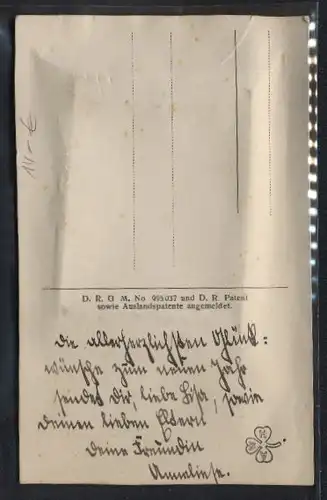 14.-€
D. R. G M. No 995037 und D. R. Patent
sowie Auslandspatente angemeldet.
Die allerherzlichsten Glück-
wünsche zum neuen Jahr
sendet Dir, liebe Lisa, sowie
Deinen lieben Eltern
Deine Freundin
Anneliese.